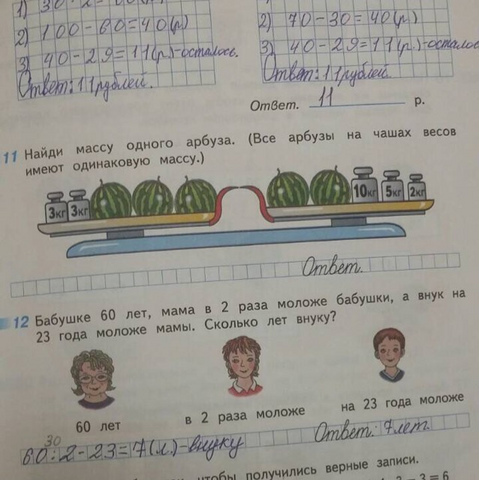 1) 30 · 2 = 60 (р.)
2) 100 - 60 = 40 (р.)
3) 40 - 29 = 11 (р.) - осталось.
Ответ: 11 рублей.
2) 70 - 30 = 40 (р.)
3) 40 - 29 = 11 (р.) - осталос
Ответ: 11 рублей.
Ответ. 11 р.
11 Найди массу одного арбуза. (Все арбузы на чашах весов
имеют одинаковую массу.)
3кг 3кг 10кг 5кг 2кг
Ответ.
12 Бабушке 60 лет, мама в 2 раза моложе бабушки, а внук на
23 года моложе мамы. Сколько лет внуку?
60 лет в 2 раза моложе на 23 года моложе
30
60 : 2 - 23 = 7 (л.) - внуку
Ответ: 7 лет.
чтобы получились верные записи.
- 3 = 6